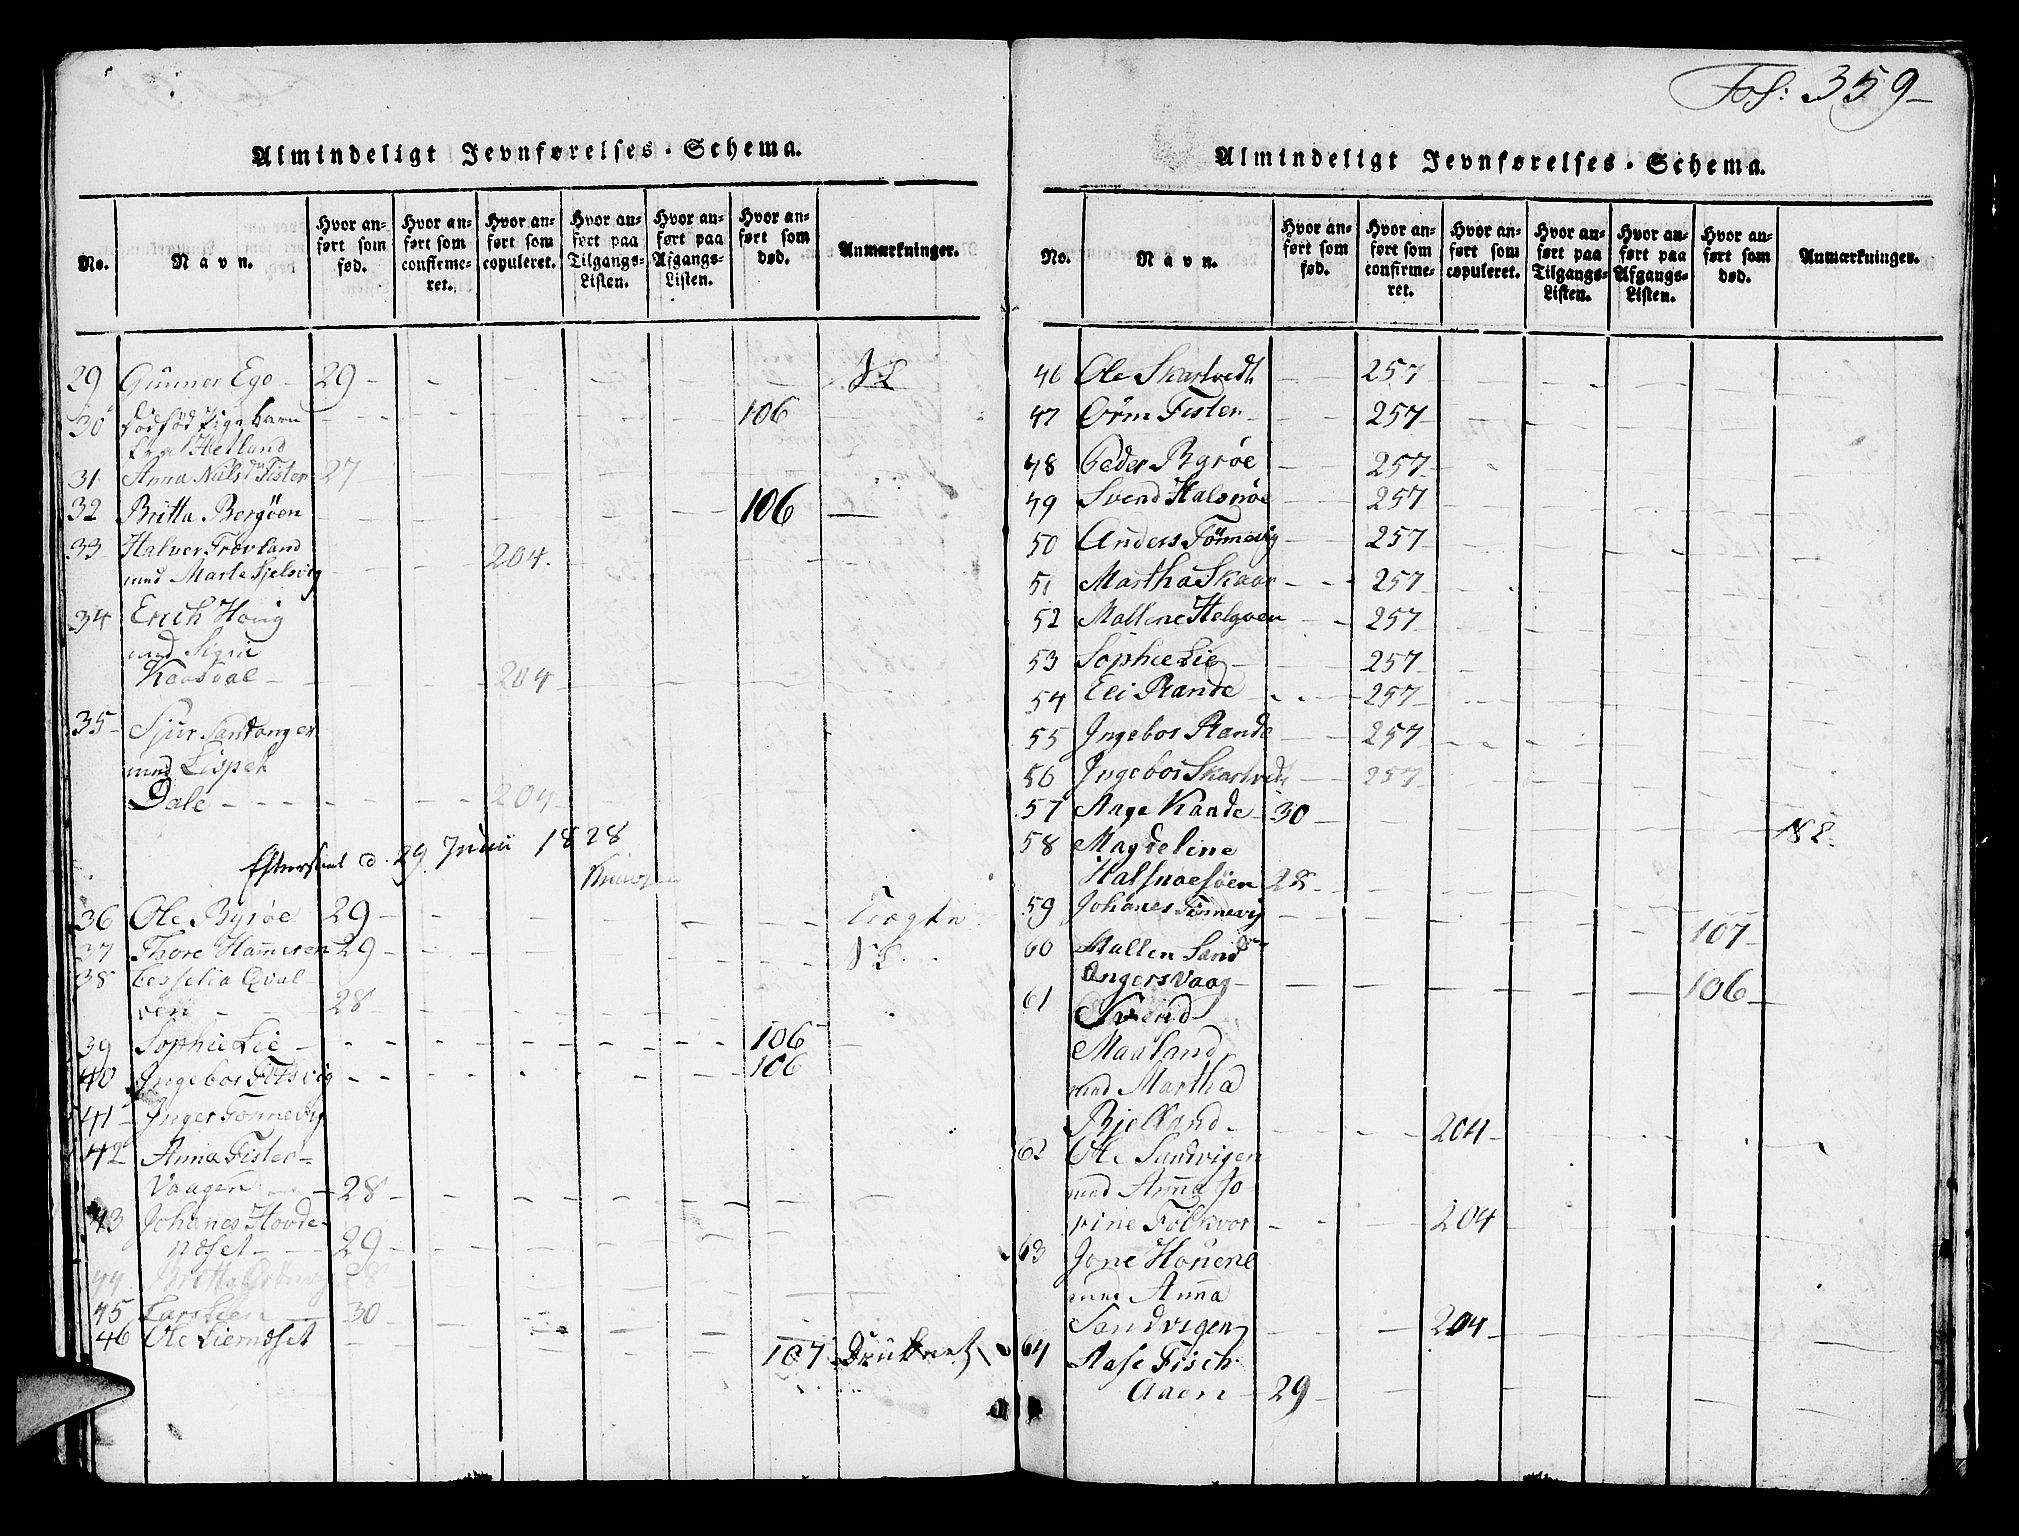 Almindeligt Jevnførelses-Schema.
No.
Navn.
Hvor an-
ført som
fød.
Hvor an-
ført som
confirme-
ret.
Hvor an-
ført som
copuleret.
Hvor an-
ført paa
Tilgangs-
Listen.
Hvor an-
ført paa
Afgangs-
Listen.
Hvor an-
ført som
død.
Anmærkninger.
29 Gunner Ego 29
30 Dödföd Pige barn 106
Helland
31 Anna Nilsd Fister 27
32 Britta Bergöen 106
33 Halver Trovland 204.
med Marte Hjelsvig
34 Erich Hovig
med Sigri
Kaasdal 204
35 Sjur Sandanger
med Lispet
Dale 204
d. 29 Junii 1828
36 Ole Byrøe 29
37 Thore Hammeren 29
38 Cesselia Qval
ven 28
39 Sophie Lie 106
40 Ingebor 106
41 Inger Tönnevig
42 Anna Fister-
Vaagen 28
43 Johanes Hovde-
næset 29
44 Britta 28
45 Lars 30
46 Ole Liernæset 107 Druknet
Fol: 359
Almindeligt Jevnførelses-Schema.
No.
Navn.
Hvor an-
ført som
fød.
Hvor an-
ført som
confirme-
ret.
Hvor an-
ført som
copuleret.
Hvor an-
ført paa
Tilgangs-
Listen.
Hvor an-
ført paa
Afgangs-
Listen.
Hvor an-
ført som
død.
Anmærkninger.
46 Ole Skartvedt 257
47 Orm Fister 257
48 Peder Byrøe 257
49 Svend Halsnøe 257
50 Anders Tönnevig 257
51 Martha Skaar 257
52 Mallene Helgøen 257
53 Sophie Lie 257
54 Eli Rande 257
55 Ingebor Rande 257
56 Ingebor Skartvedt 257
57 Aage Raade 30
58 Magdeline
Halsnoesöen 28
59 Johanes Tönnevig 107
60 Mallen Sand
Angers Vaag 106
61 Svend
Maaland
med Martha
Bjelland 204
62 Ole Sandvigen
med Anna Jo
rine Folkvor 204
63 Jone Houene
med Anna
Sandvigen 204
64 Aase Fisch
Aaen 29